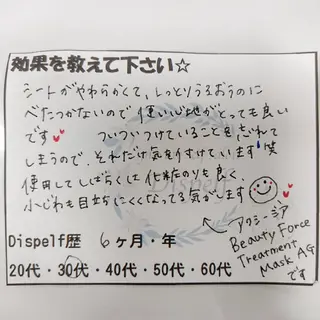 効果を教えて下さい☆
シートがやわらかくて、しっとりうるおうのに
べたつかないので 使い心地がとっても良い
です♥ ついついつけていることを忘れて
しまうので、それだけ気を付けています笑
使用してしばらくは化粧のりも良く、
小じわも目立ちにくくなってる気がします
アクシージア
Beauty Force
Treatment
Mask AG
です
Dispelf
Dispelf歴 6ヶ月・年
20代・30代・40代・50代・60代